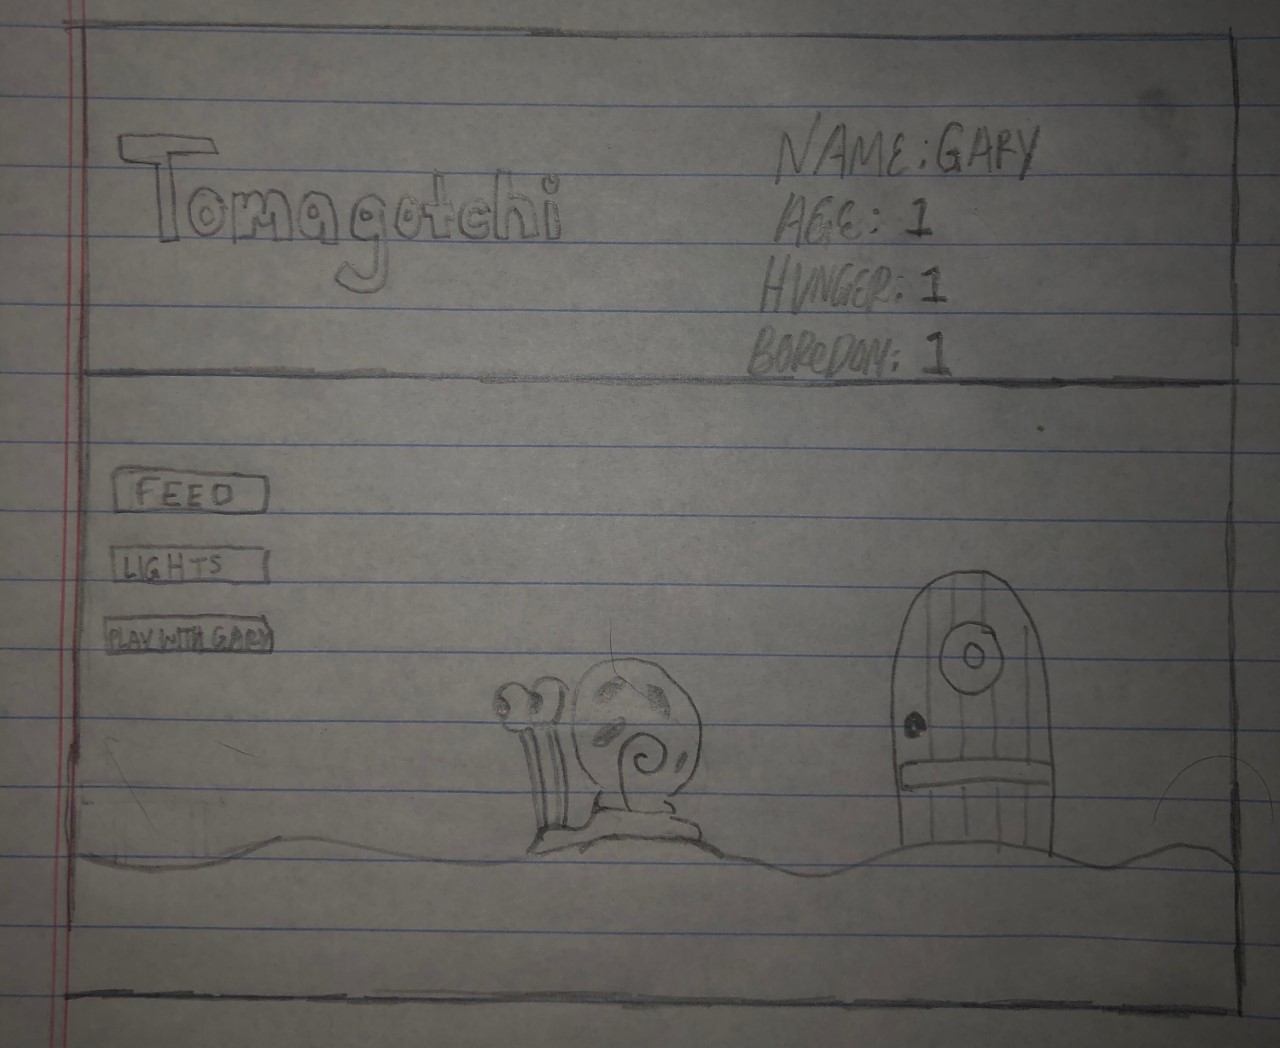 Tomagotchi
NAME: GARY
AGE: 1
HUNGER: 1
BOREDOM: 1
FEED
LIGHTS
PLAY WITH GARY